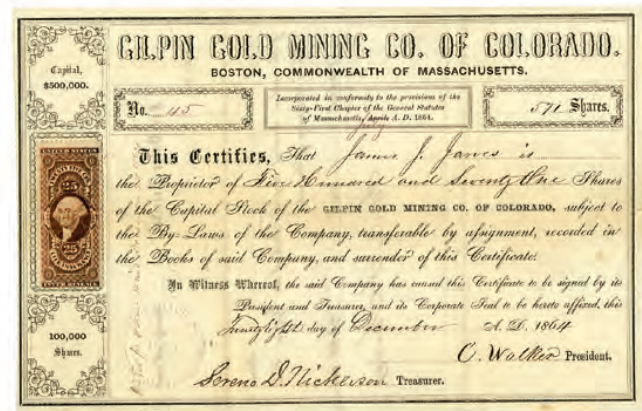 GILPIN GOLD MINING CO. OF COLORADO.
BOSTON, COMMONWEALTH OF MASSACHUSETTS.
Capital,
$500,000.
No. 45
Incorporated in conformity to the provisions of the
Sixty-First Chapter of the General Statutes
of Massachusetts, April A. D. 1864.
July
571 Shares.
This Certifies, That James J. Jarves is
the Proprietor of Five Hunared and Seventy One Shares
of the Capital Stock of the GILPIN GOLD MINING CO. OF COLORADO, subject to
the By-Laws of the Company, transferable by assignment, recorded in
the Books of said Company, and surrender of this Certificate.
In Witness Whereof, the said Company has caused this Certificate to be signed by its
President and Treasurer, and its Corporate Seal to be hereto affixed, this
day of December A. D. 1864
C. Walker President.
Sereno D. Nickerson Treasurer.
UNITED STATES
25
25
100,000
Shares.